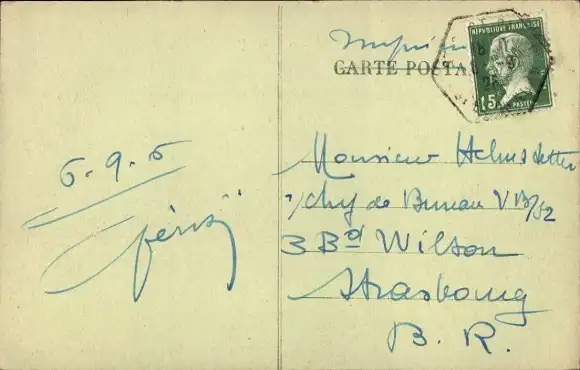 Imprimé
CARTE POSTALE
RÉPUBLIQUE FRANÇAISE
15c
PASTEUR
6-9-6
Monsieur Helmstetter
s/chef de Bureau VB/52
3 Bd Wilson
Strasbourg
B. R.